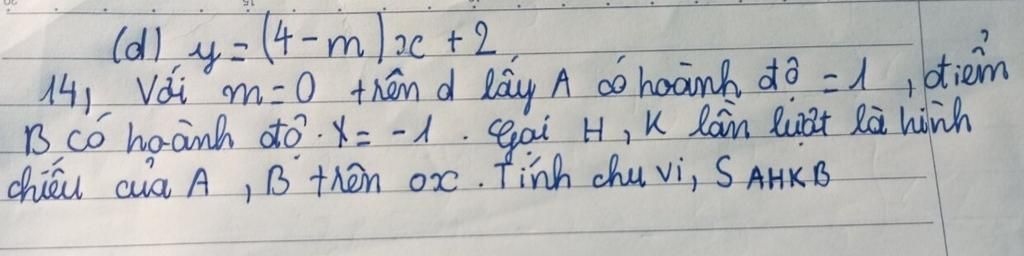 (d) y = (4 - m)x + 2
14, Với m = 0 trên d lấy A có hoành độ = 1, điểm
B có hoành độ. x = -1. Gọi H, K lần lượt là hình
chiếu của A, B trên ox. Tính chu vi, S AHKB